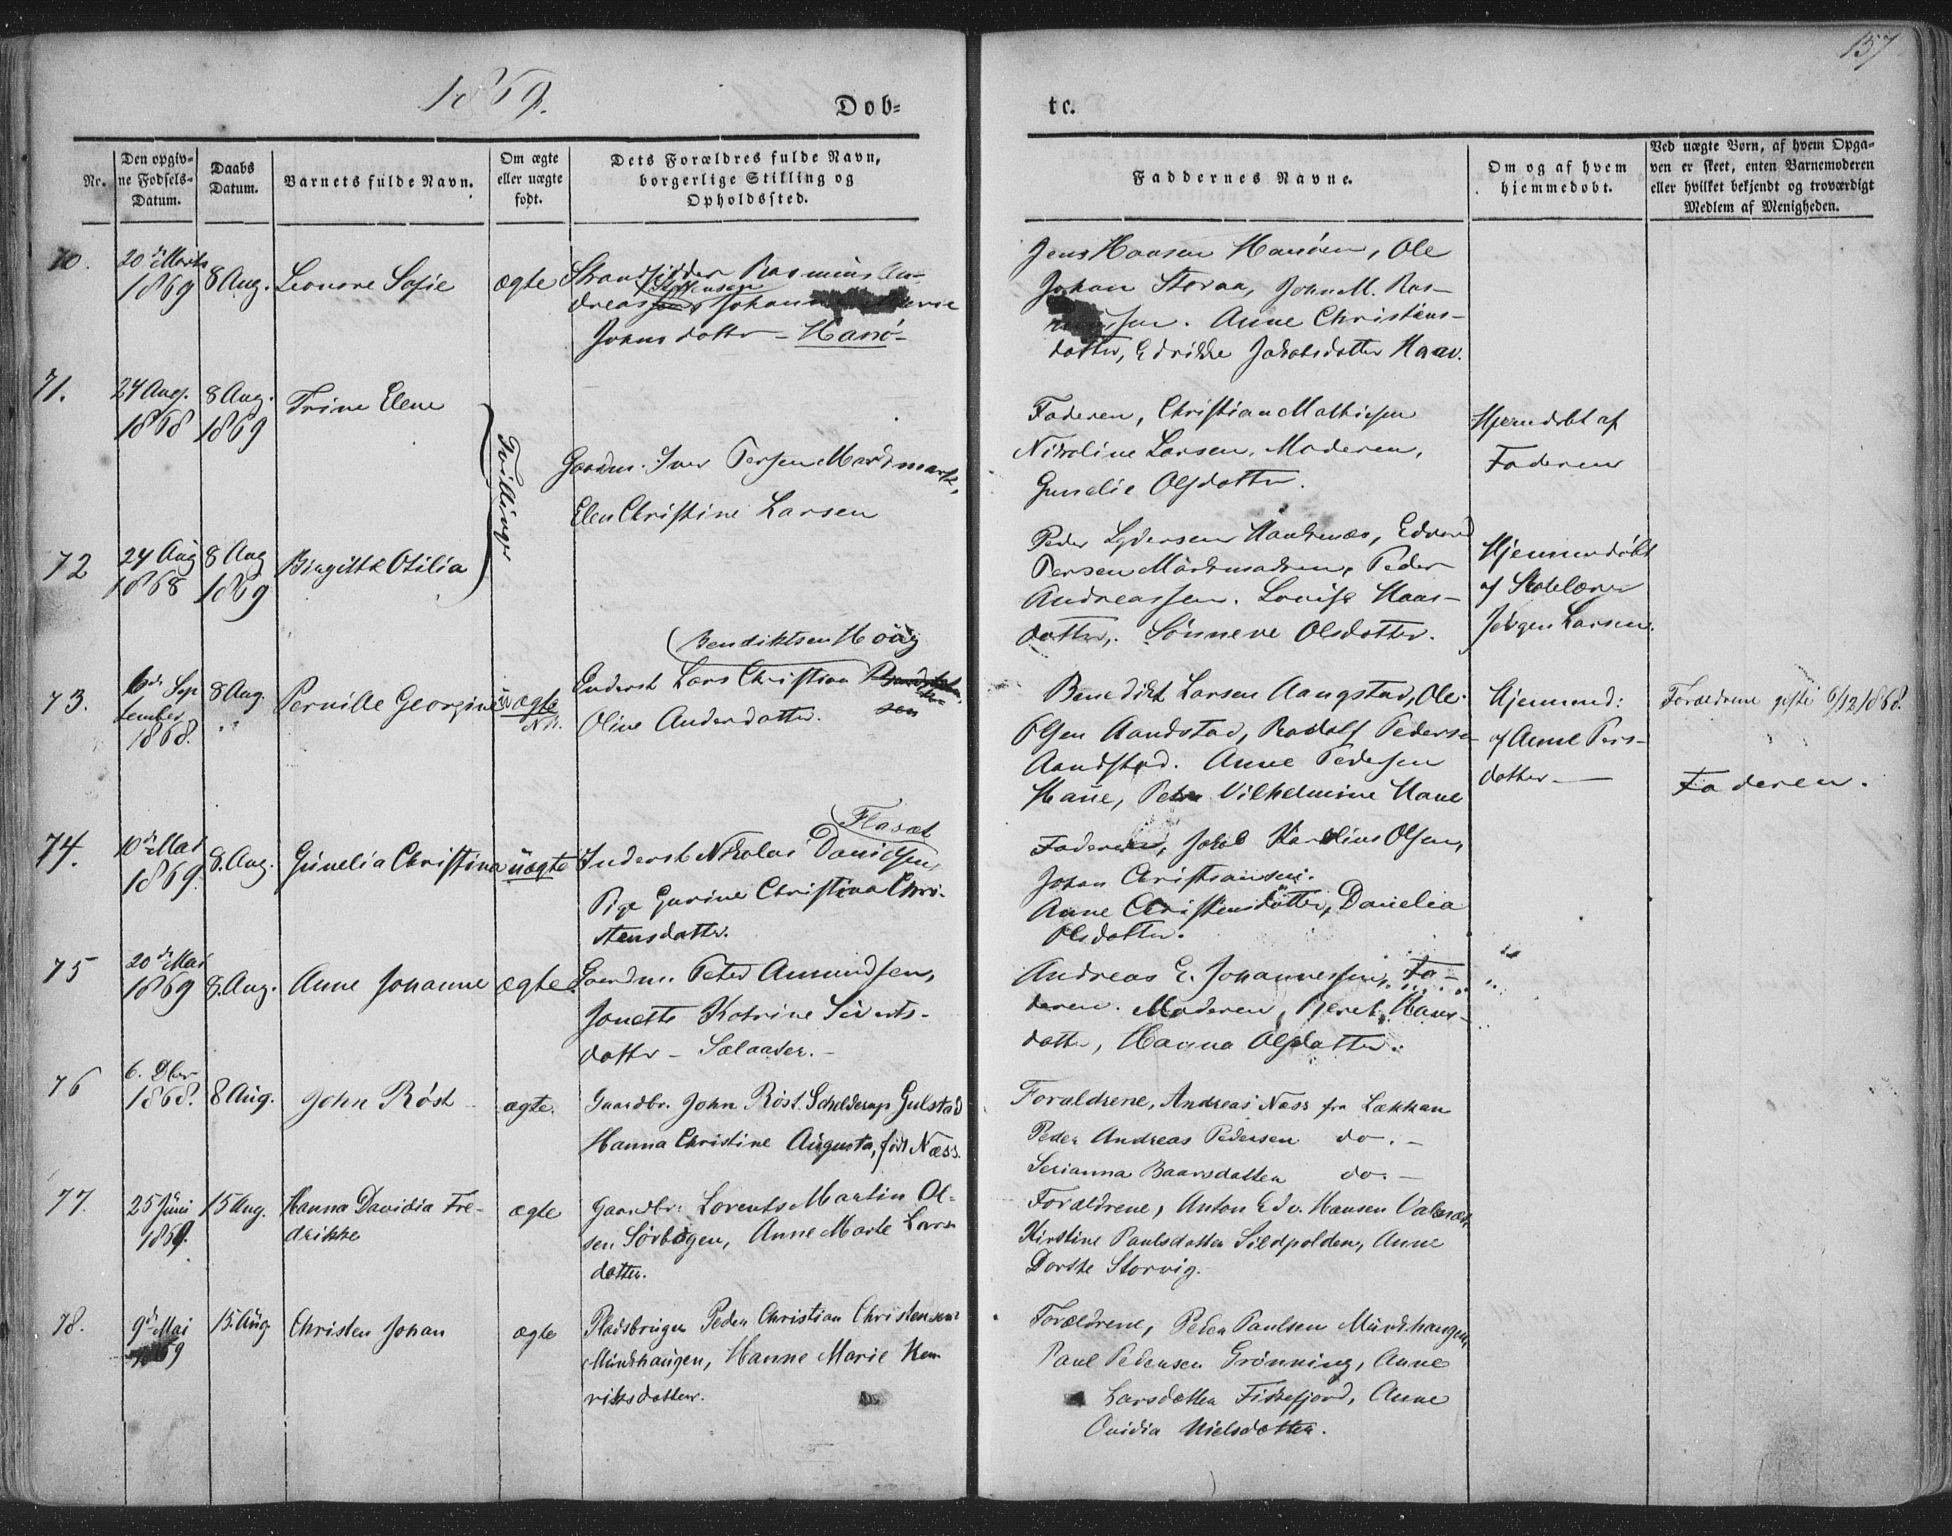 157
1869.
Døb-
te.
Nr.
Den opgiv-
ne Fødsels-
Datum.
Daabs
Datum.
Barnets fulde Navn.
Om ægte
eller uægte
født.
Dets Forældres fulde Navn,
borgerlige Stilling og
Opholdssted.
Faddernes Navne.
Om og af hvem
hjemmedøbt.
Ved uægte Børn, af hvem Opga-
ven er skeet, enten Barnemoderen
eller hvilket bekjendt og troværdigt
Medlem af Menigheden.
70.
20de Marts
1869
8 Aug.
Leonore Sofie
ægte
Strandsidder Rasmus An-
dreas Johan
Johnsdatter - Hanø-
Jens Hansen Hanøen, Ole
Johan Storaa, John M. Ras-
sen. Anne Christens-
datter, Edrikke Jakobsdatter Haav.
71.
24 Aug.
1868
8 Aug.
1869
Trine Elene
Tvillinge
Gaardm. Iver Persen Markmark,
Elen Christine Larsen
Faderen, Christian Mathiesen
Nikoline Larsen, Moderen,
Gunelie Olsdatter.
Hjemdøbt af
Faderen
72
24 Aug
1868
8 Aug
1869
Birgitte Otilia
Peder Lydersen Haukenæs, Edvard
Persen Markmarken, Peder
Andreassen. Lovise Haas-
datter. Sønneve Olsdatter.
Hjemmedøbt
af Skolelærer
Jørgen Larsen.
73.
6de Sep
tember
1868.
8 Aug.
Pernille Georgine
uægte
NB.
Bendiktsen Høug
Inderst Lars Christian
sen
Oline Andersdatter.
Benedikt Larsen Aangstad, Ole
Olsen Aandstad, Rodolf Pederse
Aandstad. Anne Pedersen
Haüe, Petra Vilhelmine Haue
Hjemmed:
af Anne Pers-
datter —
Forældrene gifte 6/12 1868.
Faderen.
74.
10de Mai
1869.
8. Aug.
Günelia Christina
üægte
Flasæt
Inderst Nikolai Danielsen,
Pige Gurine Christina Chri-
stensdatter.
Faderen, Jakob Karolius Olsen,
Johan Christiansen.
Anne Christensdatter, Danielia
Olsdatter.
75
20de Mai
1869
8. Aug.
Anne Johanne
ægte
Gaardm. Peter Amundsen,
Jonette Katrine Siverts-
datter - Sælaader. -
Andreas E. Johannessen, Fa-
deren. Moderen, Beret Hans-
datter, Hanna Olsdatter.
76
6. Dbr
1868.
8 Aug.
John Röst
ægte.
Gaardbr. John Röst Schelderup Gulstad
Hanna Christine Augusta, født Næss.
Forældrene, Andreas Næss fra Lækkan
Peder Andreas Pedersen do. -
Serianna Baarsdatter do. -
77.
25 Juni
1869.
15 Aug.
Hanna Davidia Fre-
drikke
ægte
Gaardbr. Lorents Martin Ol-
sen Sørbøgen, Anne Marte Lars
datter.
Forældrene, Anton Edv. Hansen Valnæs,
Kirstine Paulsdatter Sildpolden, Anne
Dorthe Storvig.
78.
9de Mai
1869
15 Aug
Christen Johan
ægte
Pladsbruger Peder Christian Christensen
Mündhaugen, Hanne Marie Hen-
riksdatter.
Forældrene, Peder Paulsen Mündhaugen,
Paul Pedersen Grønning, Anne
Larsdatter Fiskefjord, Anne
Ovidia Nielsdatter.